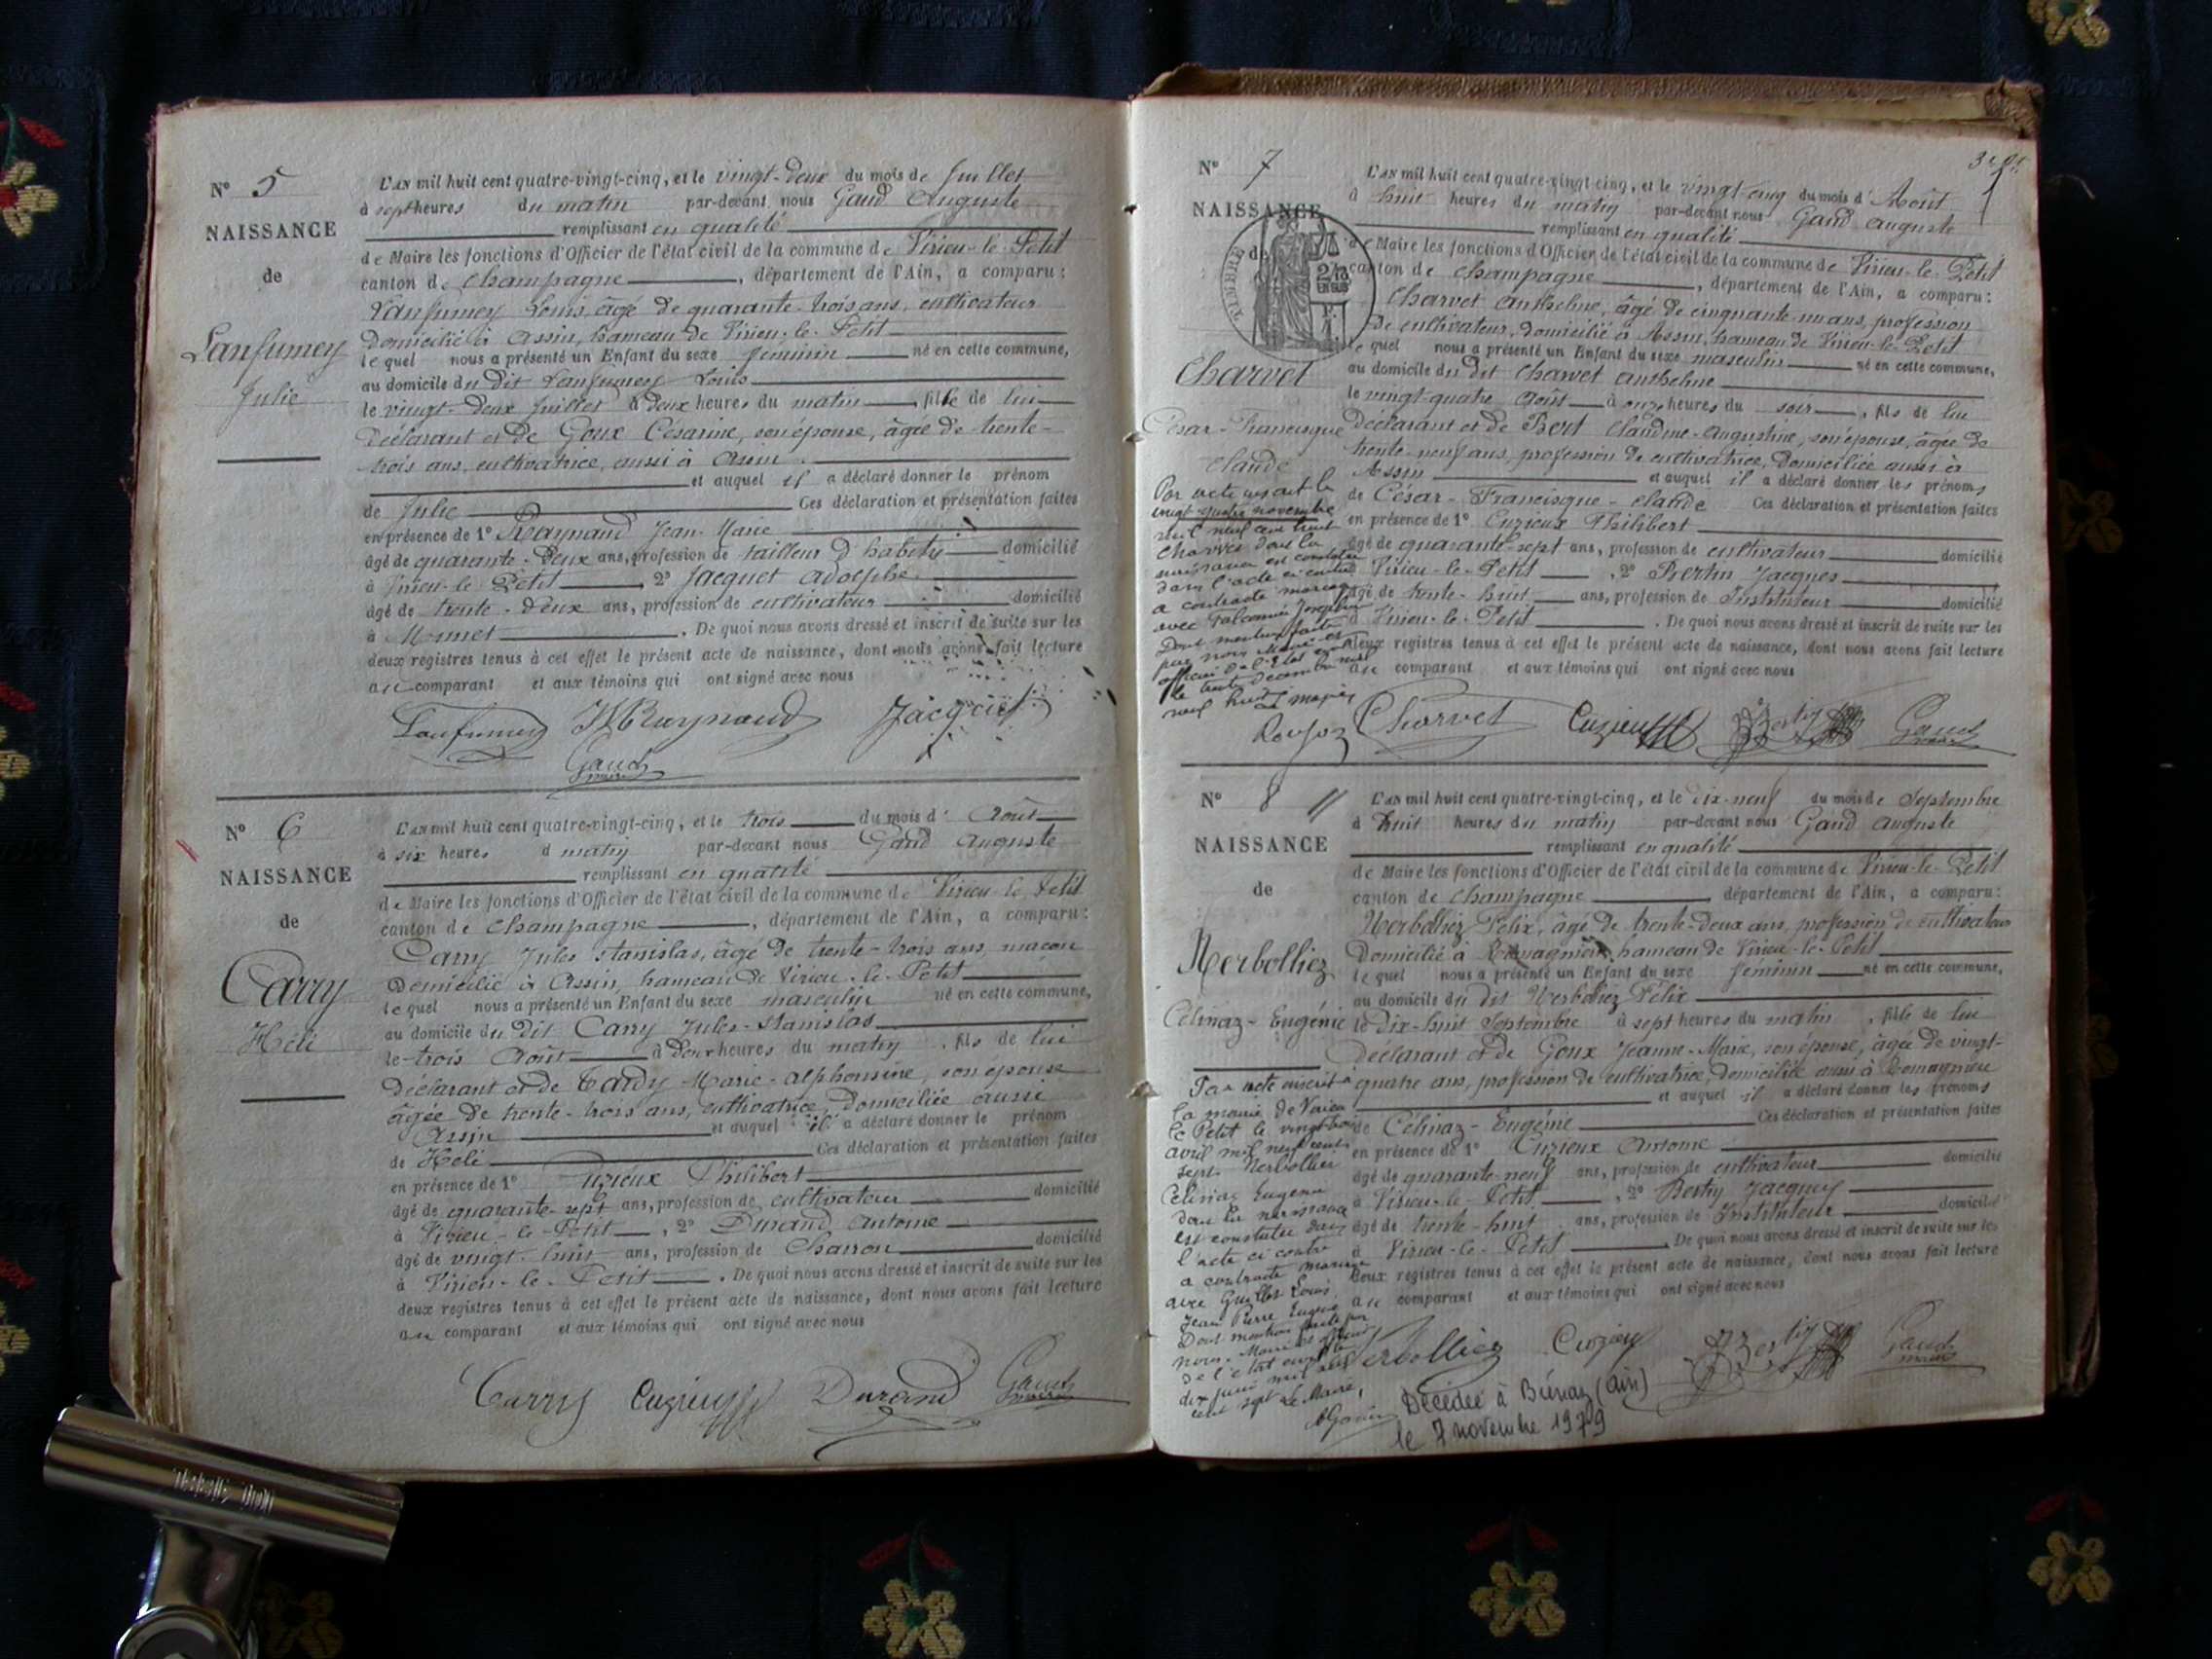 N° 5
NAISSANCE
de
Lanfumey
Julie
L'AN mil huit cent quatre-vingt-cinq, et le vingt-deux du mois de Juillet
à sept heures du matin par-devant nous Gaud Auguste
remplissant en qualité
de Maire les fonctions d'Officier de l'état civil de la commune de Virieu-le-Petit
canton de Champagne, département de l'Ain, a comparu:
Lanfumey Louis, âgé de quarante-trois ans, cultivateur
domicilié à Assin, hameau de Virieu-le-Petit
lequel nous a présenté un Enfant du sexe féminin né en cette commune,
au domicile du dit Lanfumey Louis
le vingt-deux Juillet à deux heures du matin, fille de lui
déclarant et de Goux Césarine, son épouse, âgée de trente-
trois ans, cultivatrice, aussi à Assin
et auquel il a déclaré donner le prénom
de Julie Ces déclaration et présentation faites
en présence de 1° Raynaud Jean-Marie
âgé de quarante-deux ans, profession de tailleur d'habits domicilié
à Virieu-le-Petit, 2° Jacquet Adolphe
âgé de trente-deux ans, profession de cultivateur domicilié
à Munet. De quoi nous avons dressé et inscrit de suite sur les
deux registres tenus à cet effet le présent acte de naissance, dont nous avons fait lecture
au comparant et aux témoins qui ont signé avec nous
Lanfumey JMRaynaud Jacquet
Gaud
maire
N° 6
NAISSANCE
de
Carry
Héli
L'AN mil huit cent quatre-vingt-cinq, et le trois du mois d'Août
à six heures d matin par-devant nous Gaud Auguste
remplissant en qualité
de Maire les fonctions d'Officier de l'état civil de la commune de Virieu-le-Petit
canton de Champagne, département de l'Ain, a comparu:
Carry Jules Stanislas, âgé de trente-trois ans, maçon
domicilié à Assin, hameau de Virieu-le-Petit
lequel nous a présenté un Enfant du sexe masculin né en cette commune,
au domicile du dit Carry Jules-Stanislas
le trois Août à deux heures du matin, fils de lui
déclarant et de Tardy Marie-Alphonsine, son épouse
âgée de trente-trois ans, cultivatrice, domiciliée aussi
Assin et auquel il a déclaré donner le prénom
de Héli Ces déclaration et présentation faites
en présence de 1° Cuzieux Philibert
âgé de quarante-sept ans, profession de cultivateur domicilié
à Virieu-le-Petit, 2° Durand Antoine
âgé de vingt-huit ans, profession de Charron domicilié
à Virieu-le-Petit. De quoi nous avons dressé et inscrit de suite sur les
deux registres tenus à cet effet le présent acte de naissance, dont nous avons fait lecture
au comparant et aux témoins qui ont signé avec nous
Carry Cuzieux Durand Gaud
maire
N° 7
NAISSANCE
de
TIMBRE
Charvet
César-Francisque
Claude
Par acte inscrit le
vingt quatre novembre
mil neuf cent huit
Charvet dont la
naissance est constatée
dans l'acte ci contre
a contracté mariage
avec Falconnier Joséphine
Dont mention faite
par nous Maire et
officier de l'Etat civil
le trente décembre mil
neuf huit
L'AN mil huit cent quatre-vingt-cinq, et le vingt-cinq du mois d'Août
à huit heures du matin par-devant nous Gaud Auguste
remplissant en qualité
de Maire les fonctions d'Officier de l'état civil de la commune de Virieu-le-Petit
canton de Champagne, département de l'Ain, a comparu:
Charvet Anthelme, âgé de cinquante-un ans, profession
de cultivateur, domicilié à Assin, hameau de Virieu-le-Petit
lequel nous a présenté un Enfant du sexe masculin né en cette commune,
au domicile du dit Charvet Anthelme
le vingt-quatre Août à onze heures du soir, fils de lui
déclarant et de Bert Claudine-Augustine, son épouse, âgée de
trente-neuf ans, profession de cultivatrice, domiciliée aussi à
Assin et auquel il a déclaré donner les prénoms
de César-Francisque-Claude Ces déclaration et présentation faites
en présence de 1° Cuzieux Philibert
âgé de quarante-sept ans, profession de cultivateur domicilié
à Virieu-le-Petit, 2° Bertin Jacques
âgé de trente-huit ans, profession de Instituteur domicilié
à Virieu-le-Petit. De quoi nous avons dressé et inscrit de suite sur les
deux registres tenus à cet effet le présent acte de naissance, dont nous avons fait lecture
au comparant et aux témoins qui ont signé avec nous
Charvet Cuzieux Bertin Gaud
maire
N° 8
NAISSANCE
de
Nerbolliez
Célinaz-Eugénie
Par acte inscrit à
la mairie de Virieu
le Petit le vingt trois
avril mil neuf cent
sept Nerbollier
Celinaz Eugenie
dont la naissance
est constatée dans
l'acte ci contre
a contracté mariage
avec Guillot Louis
Jean Pierre Eugène
Dont mention faite par
nous Maire et officier
de l'état civil le
dix juin mil neuf
cent sept Le Maire,
L'AN mil huit cent quatre-vingt-cinq, et le dix-neuf du mois de Septembre
à huit heures du matin par-devant nous Gaud Auguste
remplissant en qualité
de Maire les fonctions d'Officier de l'état civil de la commune de Virieu-le-Petit
canton de Champagne, département de l'Ain, a comparu:
Nerbolliez Félix, âgé de trente-deux ans, profession de cultivateur
domicilié à Romagnieu hameau de Virieu-le-Petit
lequel nous a présenté un Enfant du sexe féminin né en cette commune,
au domicile du dit Nerbolliez Félix
le dix-huit Septembre à sept heures du matin, fille de lui
déclarant et de Goux Jeanne-Marie, son épouse, âgée de vingt-
quatre ans, profession de cultivatrice, domiciliée aussi à Romagnieu
et auquel il a déclaré donner les prénoms
de Célinaz-Eugénie Ces déclaration et présentation faites
en présence de 1° Cuzieux Antoine
âgé de quarante-neuf ans, profession de cultivateur domicilié
à Virieu-le-Petit, 2° Bertin Jacques
âgé de trente-huit ans, profession de Instituteur domicilié
à Virieu-le-Petit De quoi nous avons dressé et inscrit de suite sur les
deux registres tenus à cet effet le présent acte de naissance, dont nous avons fait lecture
au comparant et aux témoins qui ont signé avec nous
Nerbolliez Cuzieux Bertin Gaud
maire
Décédée à Béenaz (Ain)
le 7 novembre 1979